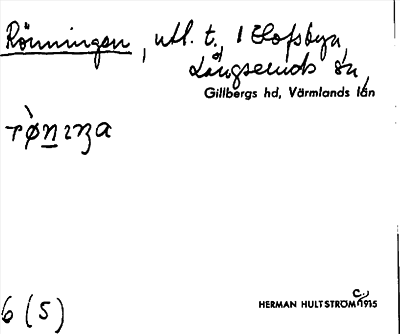 Rönningen, utl. t. 1 Elofsbyn,
Långseruds sn,
Gillbergs hd, Värmlands län
rø̀nıŋa
6 (5)
HERMAN HULTSTRÖM C. 1915